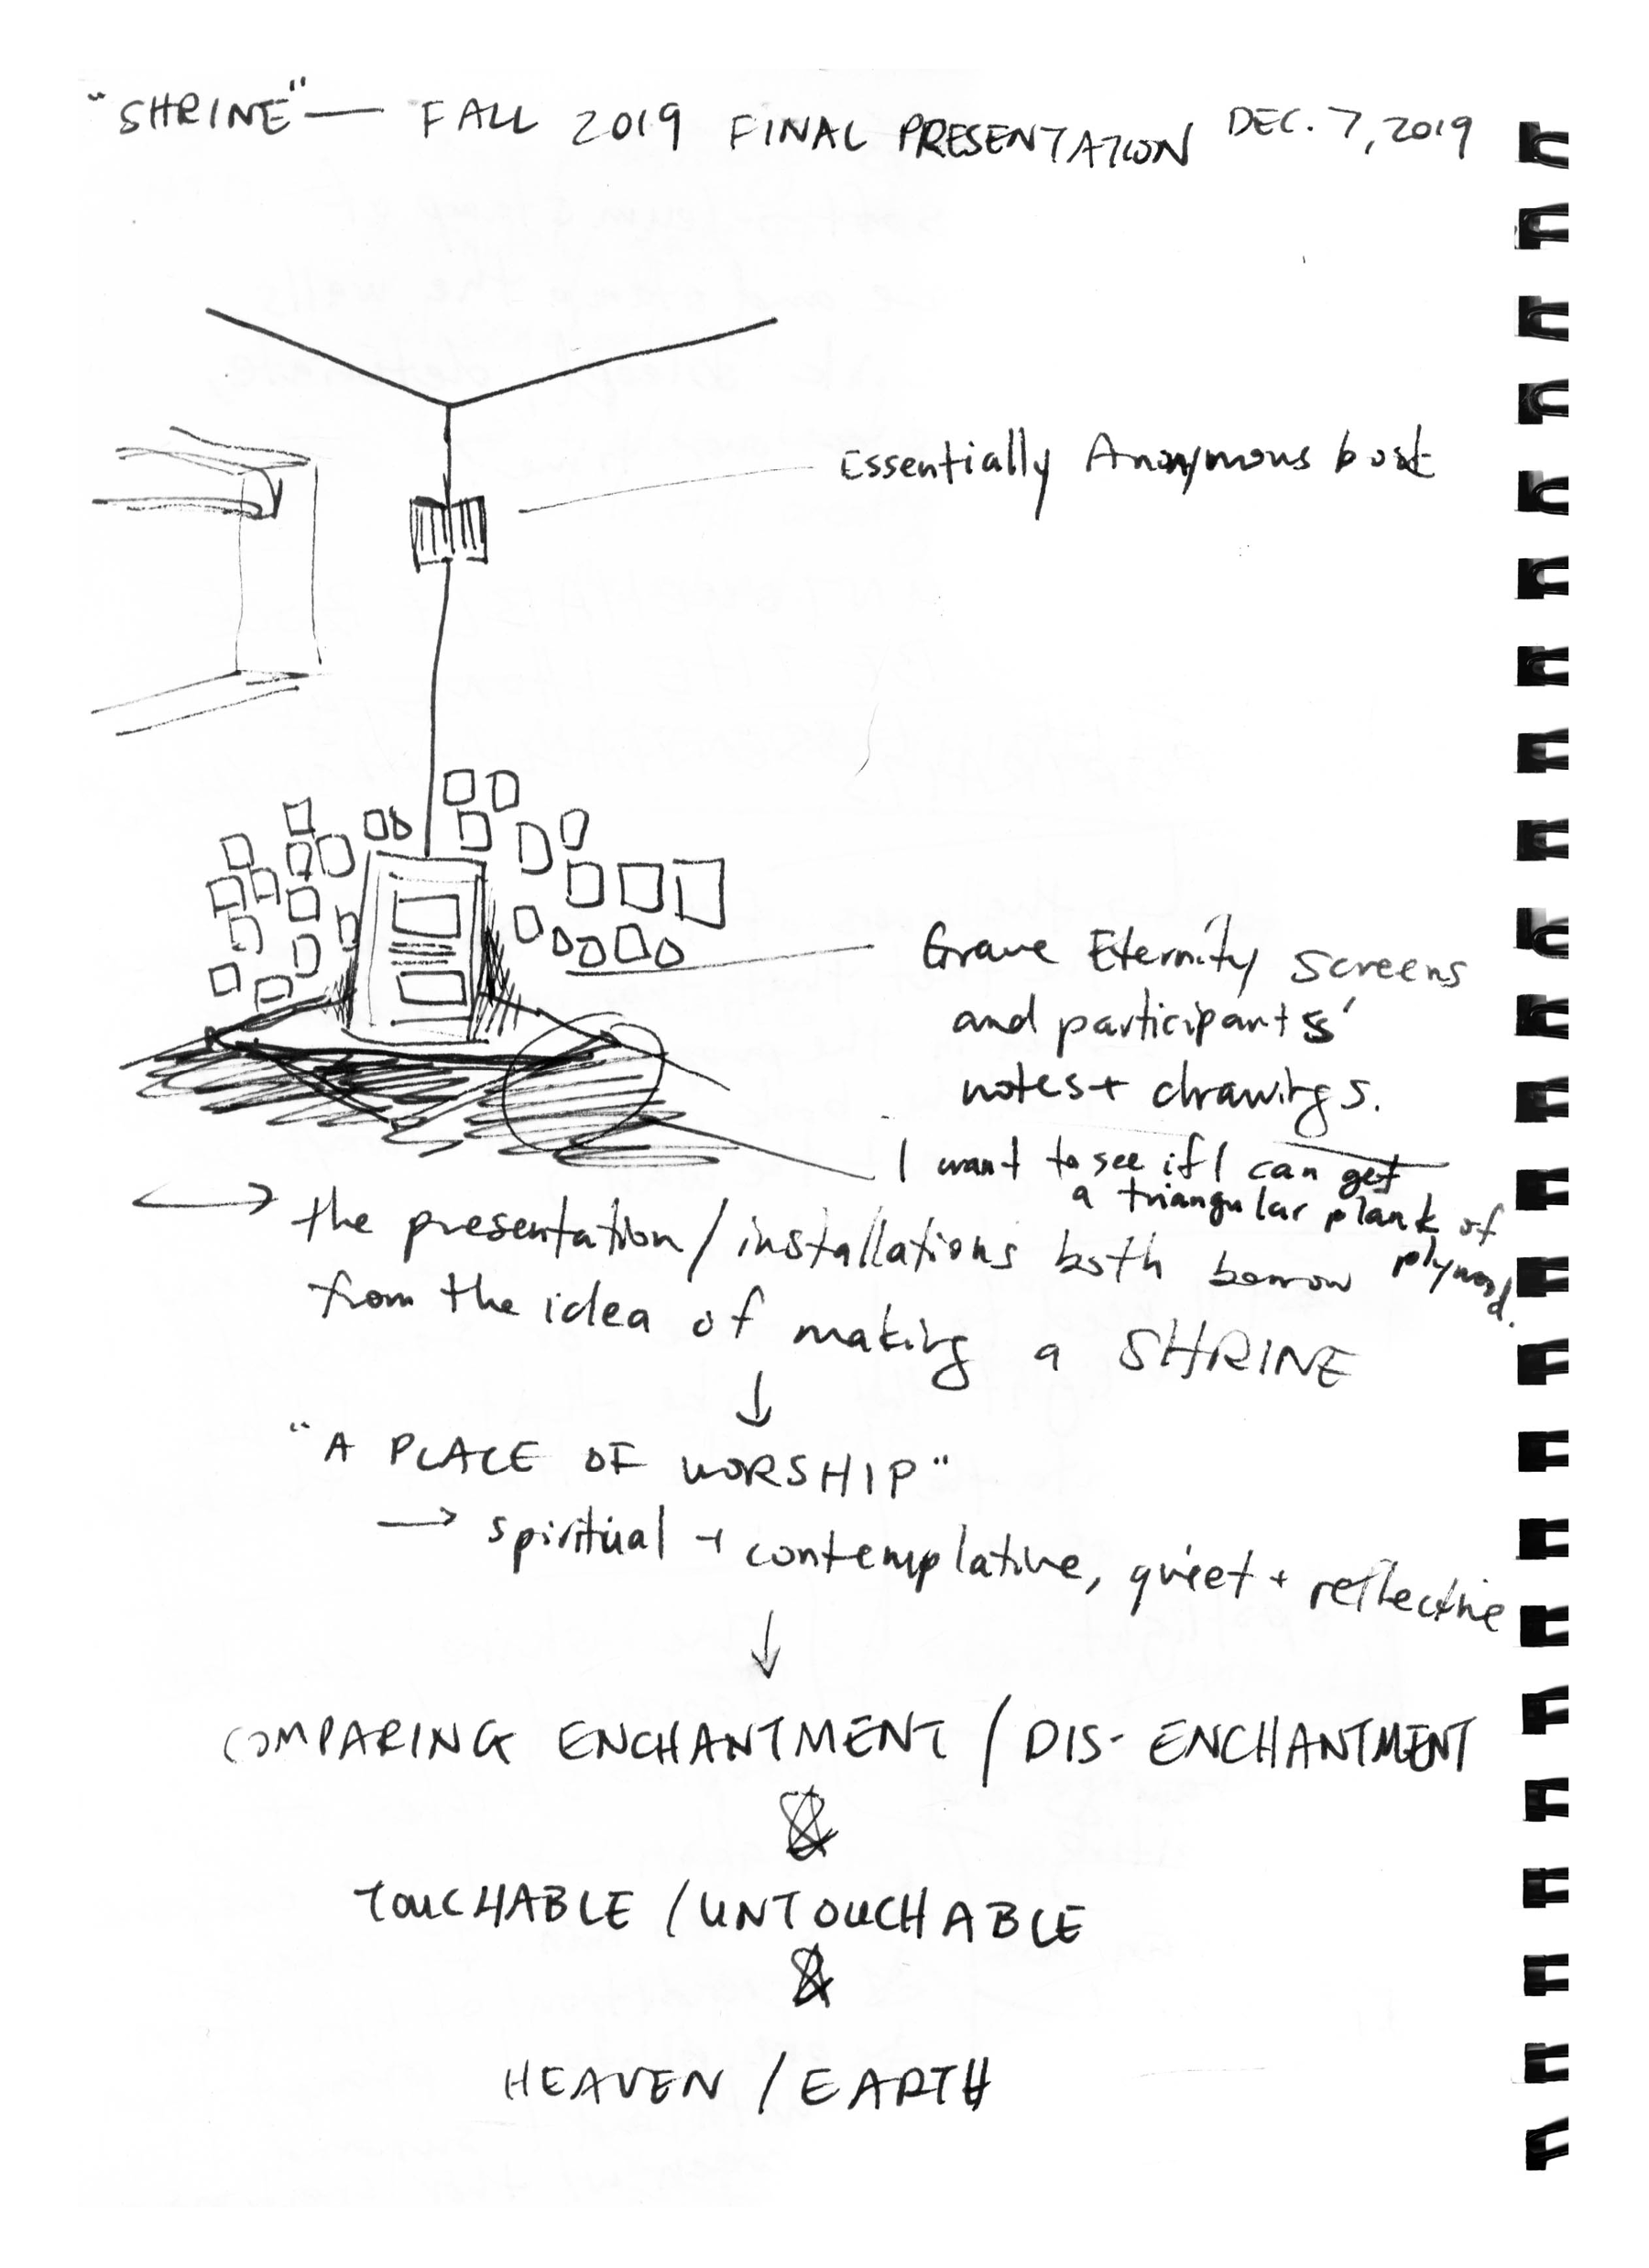 "SHRINE" — FALL 2019 FINAL PRESENTATION DEC. 7, 2019
Essentially Anonymous book
Grave Eternity screens
and participants'
notes + drawings.
I want to see if I can get
a triangular plank of
plywood.
→ the presentation/installations both borrow
from the idea of making a SHRINE
↓
"A PLACE OF WORSHIP"
→ spiritual + contemplative, quiet + reflective
↓
COMPARING ENCHANTMENT / DIS-ENCHANTMENT
&
TOUCHABLE / UNTOUCHABLE
&
HEAVEN / EARTH